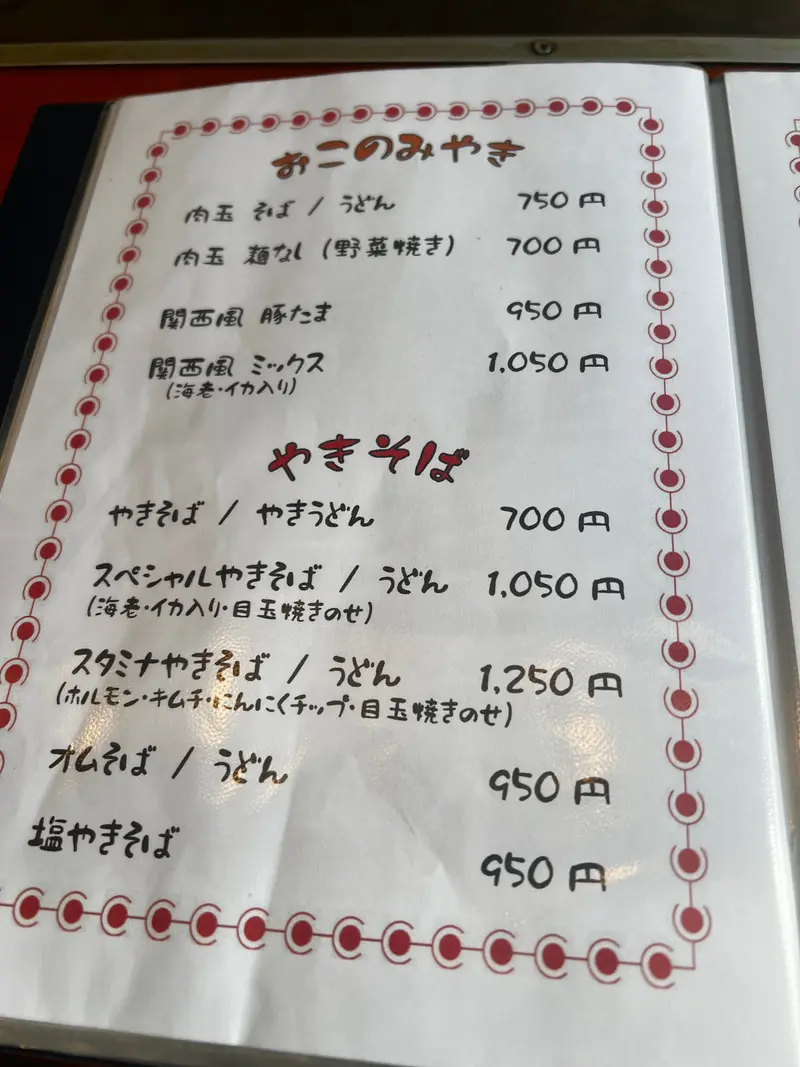 おこのみやき
肉玉 そば / うどん 750円
肉玉 麺なし (野菜焼き) 700円
関西風 豚たま 950円
関西風 ミックス 1,050円
(海老・イカ入り)
やきそば
やきそば / やきうどん 700円
スペシャルやきそば / うどん 1,050円
(海老・イカ入り・目玉焼きのせ)
スタミナやきそば / うどん 1,250円
(ホルモン・キムチ・にんにくチップ・目玉焼きのせ)
オムそば / うどん 950円
塩やきそば 950円